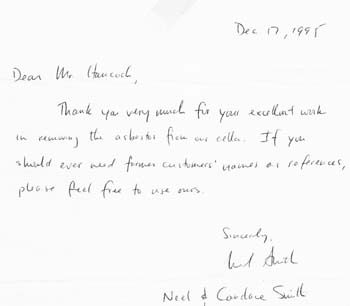 Dec 17, 1995
Dear Mr. Hancock,
Thank you very much for your excellent work
in removing the asbestos from our cellar. If you
should ever need former customers' names as references,
please feel free to use ours.
Sincerely,
Neel & Candace Smith